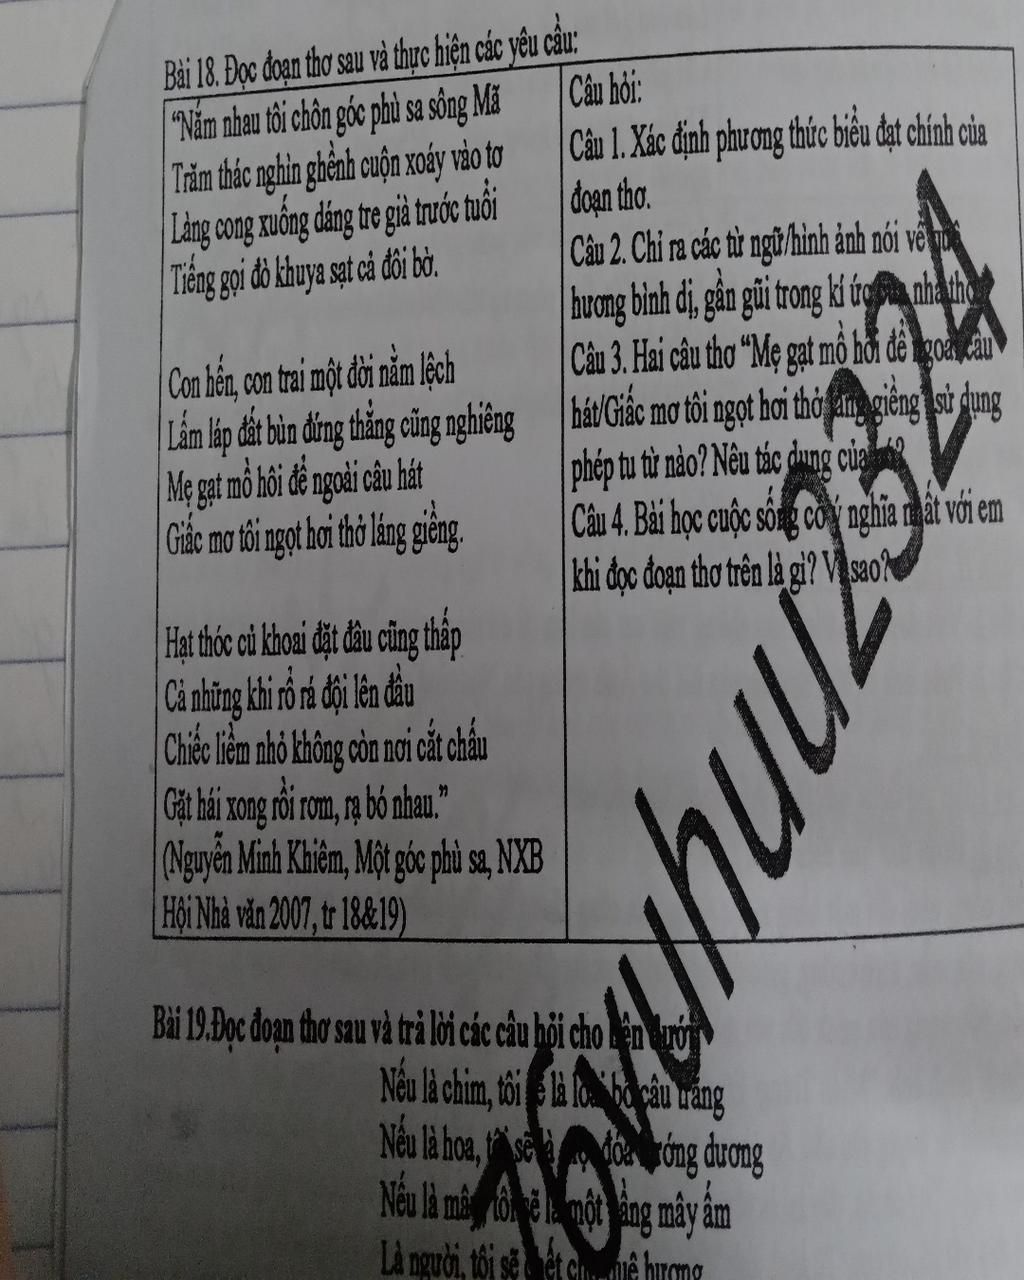 Bài 18. Đọc đoạn thơ sau và thực hiện các yêu cầu:
“Nắm nhau tôi chôn góc phù sa sông Mã
Trăm thác nghìn ghềnh cuộn xoáy vào tơ
Làng cong xuống dáng tre già trước tuổi
Tiếng gọi đò khuya sạt cả đôi bờ.
Con hến, con trai một đời nằm lệch
Lấm láp đất bùn đứng thẳng cũng nghiêng
Mẹ gạt mồ hôi để ngoài câu hát
Giấc mơ tôi ngọt hơi thở láng giềng.
Hạt thóc củ khoai đặt đâu cũng thấp
Cả những khi rổ rá đội lên đầu
Chiếc liềm nhỏ không còn nơi cắt chấu
Gặt hái xong rồi rơm, rạ bó nhau.”
(Nguyễn Minh Khiêm, Một góc phù sa, NXB
Hội Nhà văn 2007, tr 18&19)
Câu hỏi:
Câu 1. Xác định phương thức biểu đạt chính của
đoạn thơ.
Câu 2. Chỉ ra các từ ngữ/hình ảnh nói về quê
hương bình dị, gần gũi trong kí ức nhà thơ
Câu 3. Hai câu thơ “Mẹ gạt mồ hôi để ngoài câu
hát/Giấc mơ tôi ngọt hơi thở láng giềng sử dụng
phép tu từ nào? Nêu tác dụng của nó?
Câu 4. Bài học cuộc sống có ý nghĩa nhất với em
khi đọc đoạn thơ trên là gì? Vì sao?
Bài 19.Đọc đoạn thơ sau và trả lời các câu hỏi cho bên dưới
Nếu là chim, tôi sẽ là loài bồ câu trắng
Nếu là hoa, tôi sẽ là một đóa hướng dương
Nếu là mây, tôi sẽ là một vầng mây ấm
Là người, tôi sẽ chết cho quê hương
76vuhuu2324